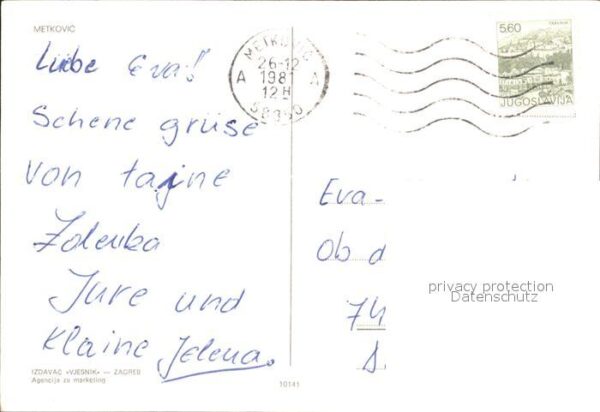 METKOVIĆ
Liebe Eva!
Schene grüse
von tajne
Zdenka
Jure und
Klaine Jelena.
IZDAVAČ «VJESNIK» — ZAGREB
Agencija za marketing
10141
METKOVIĆ
26-12
A 1981 A
12H
5.60
JUGOSLAVIJA
Eva-
Ob d
74
privacy protection
Datenschutz